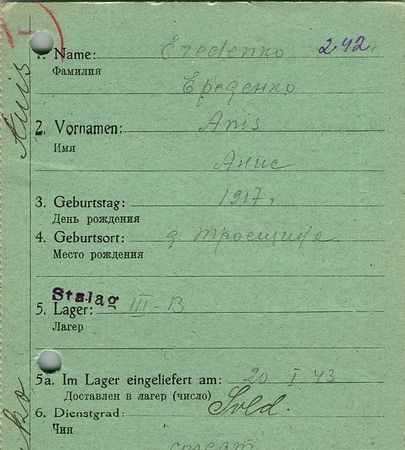 1. Name: Eredenko 242.
Фамилия
Ереденко
2. Vornamen: Anis
Имя
Анис
3. Geburtstag: 1917 г
День рождения
4. Geburtsort: д.
Место рождения
Stalag
5. Lager: III-B
Лагер
5a. Im Lager eingeliefert am: 20 I 43
Доставлен в лагер (число)
6. Dienstgrad: Sold.
Чин
Anis